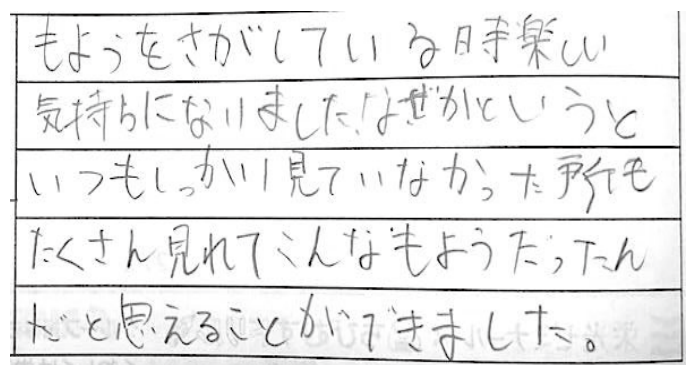 もようをさがしている時楽しい
気持ちになりました。なぜかというと
いつもしっかり見ていなかった所も
たくさん見れてこんなもようだったん
だと思えることができました。